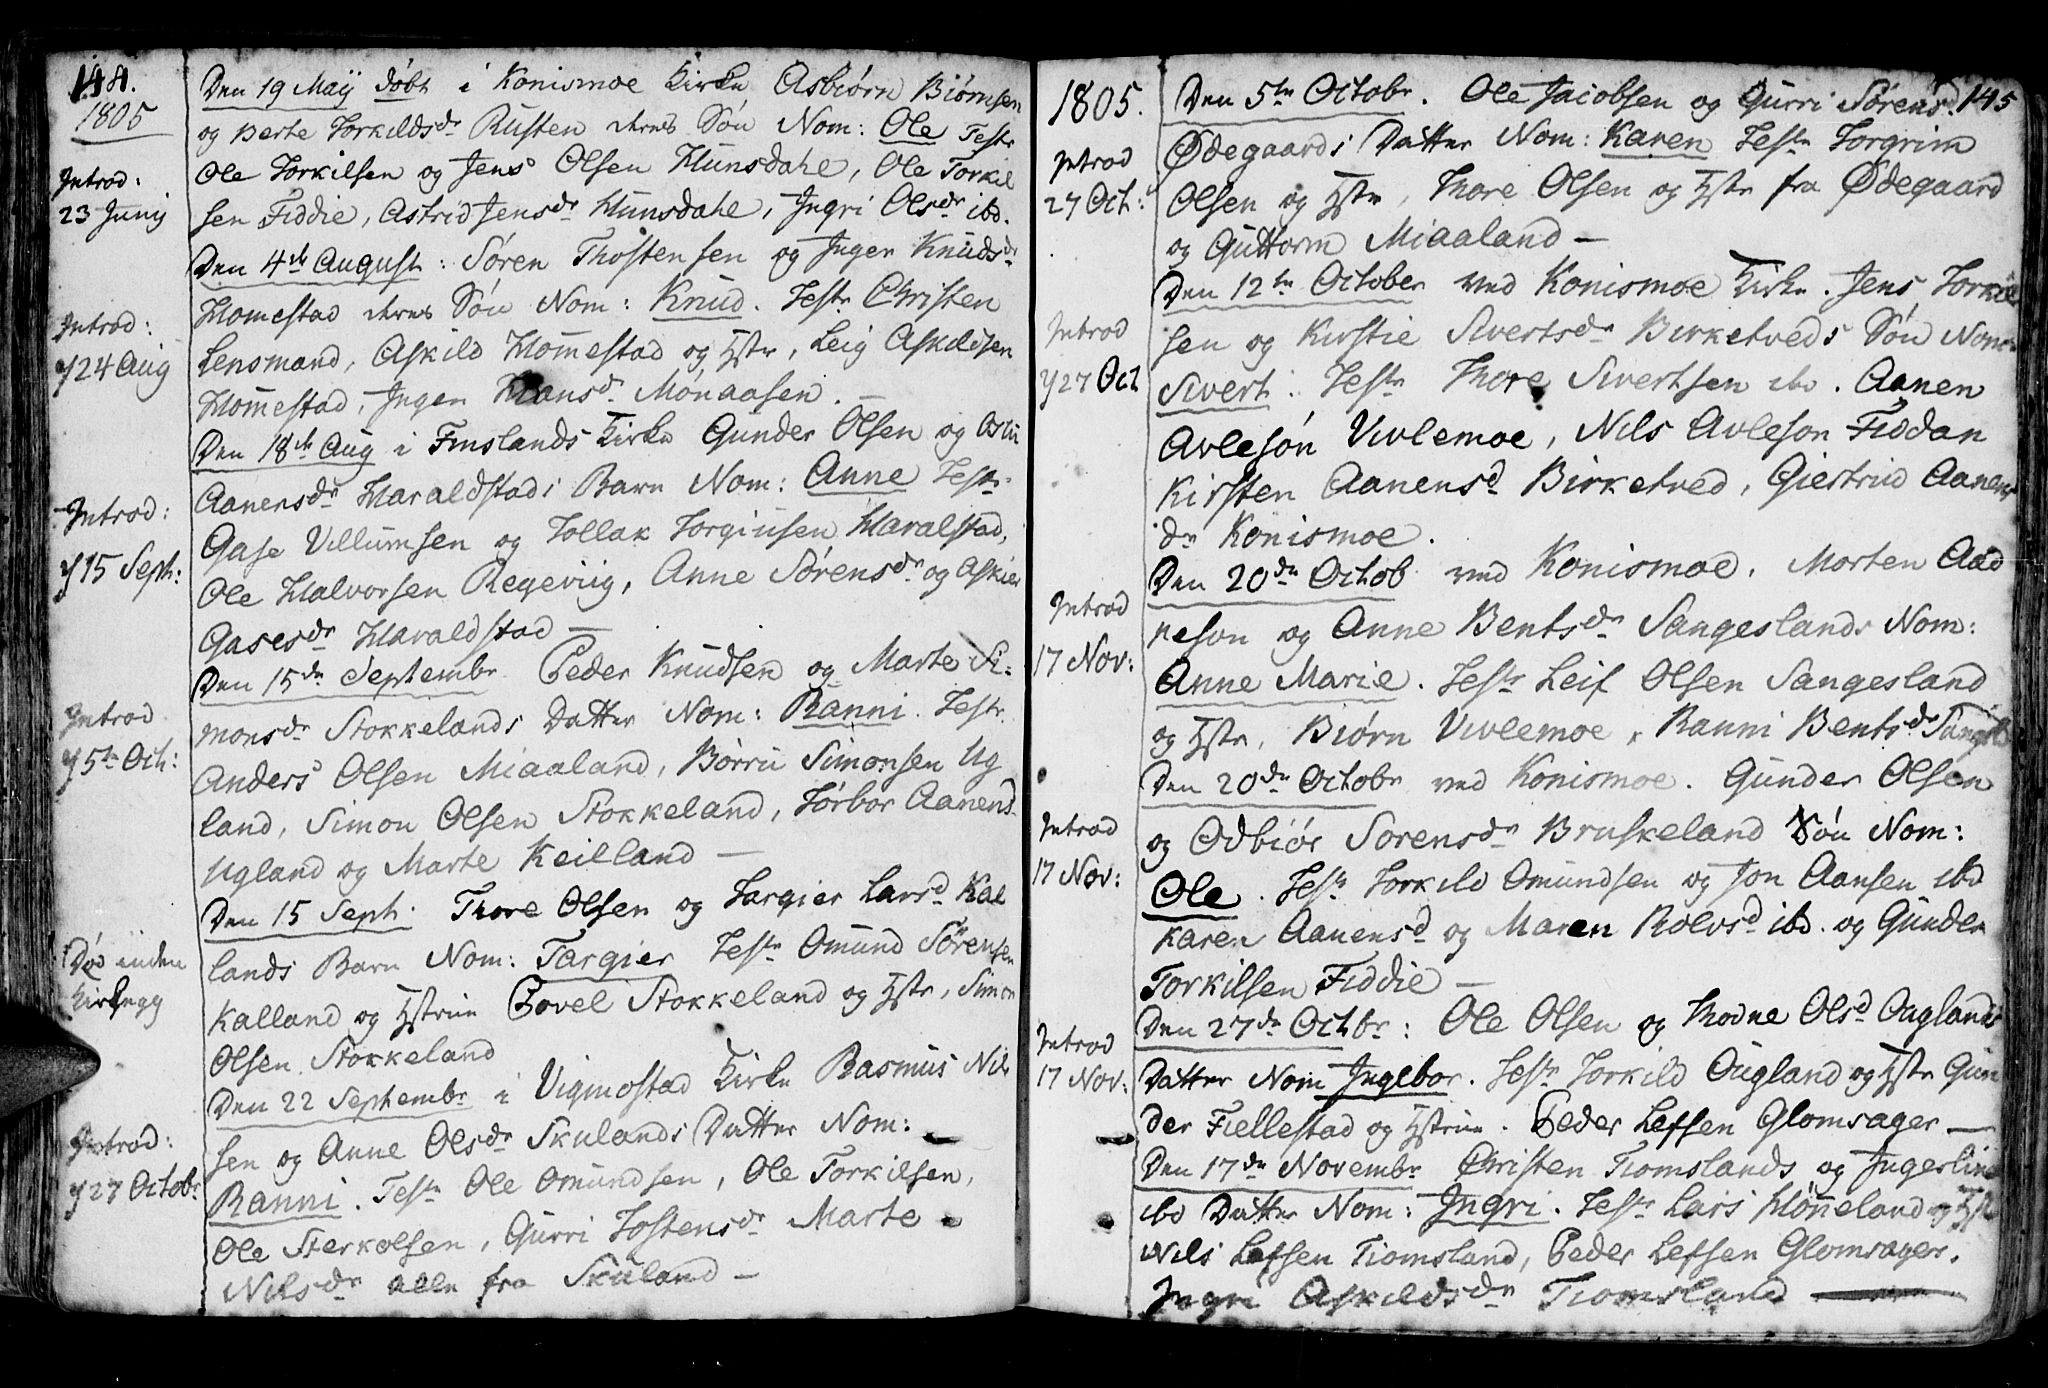 144.
1805
Den 19 Maÿ døbt i Konismoe Kirke Asbiørn Biørnsen
og Berte Torkildsdr Rusten deres Søn Nom: Ole Testr
Ole Torkilsen og Jens Olsen Hunsdahl, Ole Torkil
sen Fiddie, Astrid Jensdr Hunsdahl, Ingri Olsdr ibd.
Introd:
23 Junij
Den 4de August: Søren Thostensen og Inger Knudsdr
Homestad deres Søn Nom: Knud. Testr Christen
Lensmand, Askild Hom̄estad og Hstr, Leig Askildsen
Hom̄estad, Inger Hansdr Monaasen.
Introd:
24 Aug
Den 18de Aug i Finslands Kirke Gunder Olsen og
Aanensdr Haraldstads Barn Nom: Anne Testr
Gase Villumsen og Tollak Torgiusen Haralstad,
Ole Halvorsen Regeviig, Anne Sørensdr og
Gasesdr Haraldstad —
Introd:
15 Sept:
Den 15de Septembr Peder Knudsen og Marte Si=
monsdr Stokkelands Datter Nom: Ranni. Testr
Anders Olsen Miaaland, Børru Simonsen Ug
land, Simon Olsen Stokkeland, Torbor Aanensd
Ugland og Marte Keilland —
Introd
5te Oct:
Den 15 Sept. Thore Olsen og Targier Larsd Kal
lands Barn Nom: Targier Testr Omund Sørensen
Kalland og Hstrue Bovel Stokkeland og Hstr, Simon
Olsen Stokkeland
Død inden
Kirkegg
Den 22 Septembr i Vigmostad Kirke Rasmus Nil
sen og Anne Olsdr Skulands Datter Nom:
Ranni. Testr Ole Omundsen, Ole Torkilsen,
Ole Sterkolsen, Gurri Tostensdr Marte
Nilsdr alle fra Skuland —
Introd:
27 Octobr
145
1805.
Den 5te Octobr. Ole Jacobsen og Gurri Sørensd
Ødegaards Datter Nom: Karen Testr Torgrim
Olsen og Hstr, Thore Olsen og Hstr fra Ødegaard
og Guttorm Miaaland —
Introd
27 Oct:
Den 12te October ved Konismoe Kirke. Jens Torkil
sen og Kirstie Sivertsdr Birketveds Søn Nom:
Sivert. Testr Thore Sivertsen ibd. Aanen
Avlesøn Vivlemoe, Nils Avleson Fiddan
Kirsten Aanensd Birketved, Giertrud Aanens
dr Konismoe.
Introd
27 Oct
Den 20de Octob ved Konismoe. Morten Aad
neson og Anne Bentsdr Sangeslands Nom:
Anne Marie. Testr Leif Olsen Sangesland
og Hstr, Biørn Vivlemoe, Ranni Bentsdr Sangesl
Introd
17 Nov:
Den 20de Octobr ved Konismoe. Gunder Olsen
og Odbiør Sorensdr Bruskeland Søn Nom:
Ole. Testr Torkild Omundsen og Jon Aansen ibd
Karen Aanensd og Maren Rolvsd ibd. og Gunder
Torkilsen Fiddie —
Introd
17 Nov:
Den 27de Octbr: Ole Olsen og Thodne Olsd Ouglands
Datter Nom Ingebor. Testr Torkild Ougland og Hstr Gun
der Fiellestad og Hstrue. Peder Lefsen Glomsager —
Introd
17 Nov:
Den 17de Novembr Christen Tiomslands og Ingerline
ibd Datter Nom: Ingri. Testr Lars Høn̄eland og Hstr
Nils Lefsen Tiomsland, Peder Lefsen Glomsager.
Ingri Askildsdr Tiomsland —